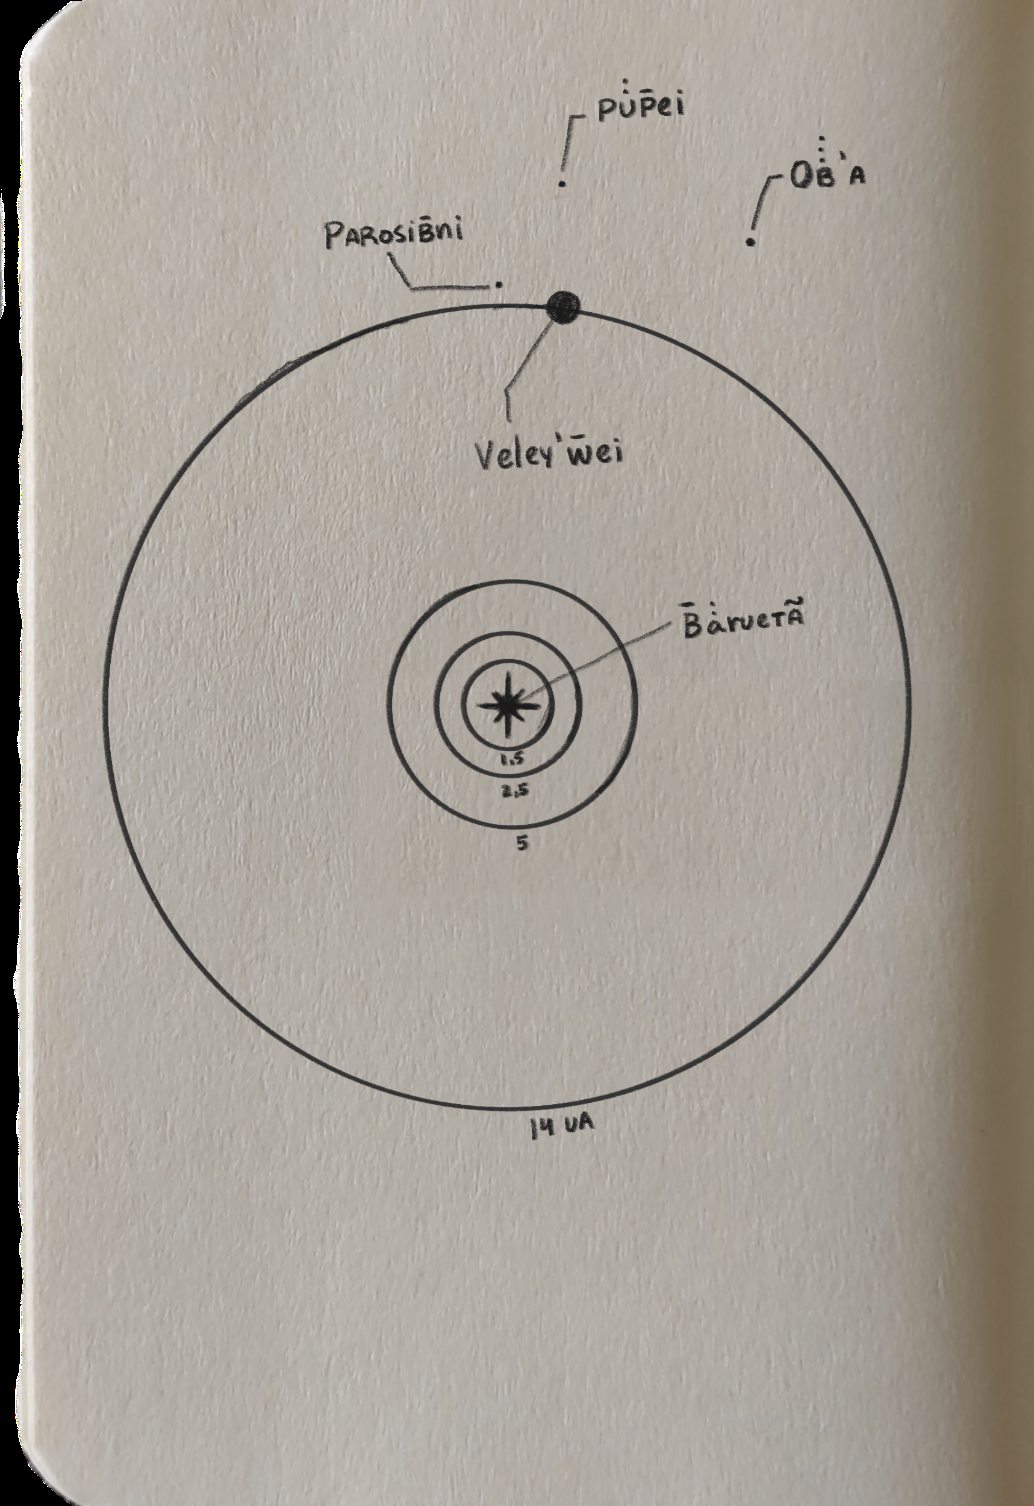 Pu̇p̄ei
OB⃛'A
PAROSiB̄ni
Veley'w̄ei
B̄ȧrueTÃ
1,5
2,5
5
14 UA